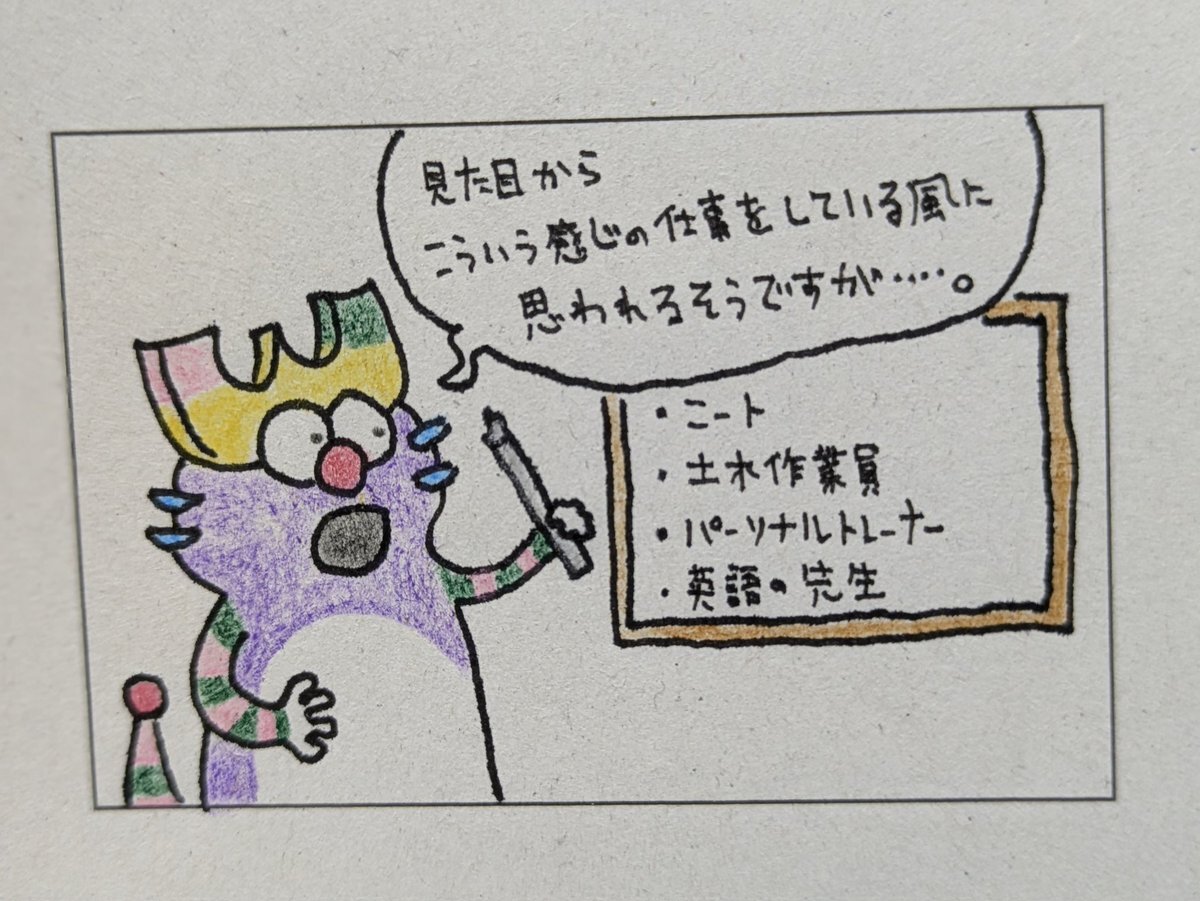 見た目から
こういう感じの仕事をしている風に
思われるそうですが……。
・ニート
・土木作業員
・パーソナルトレーナー
・英語の先生